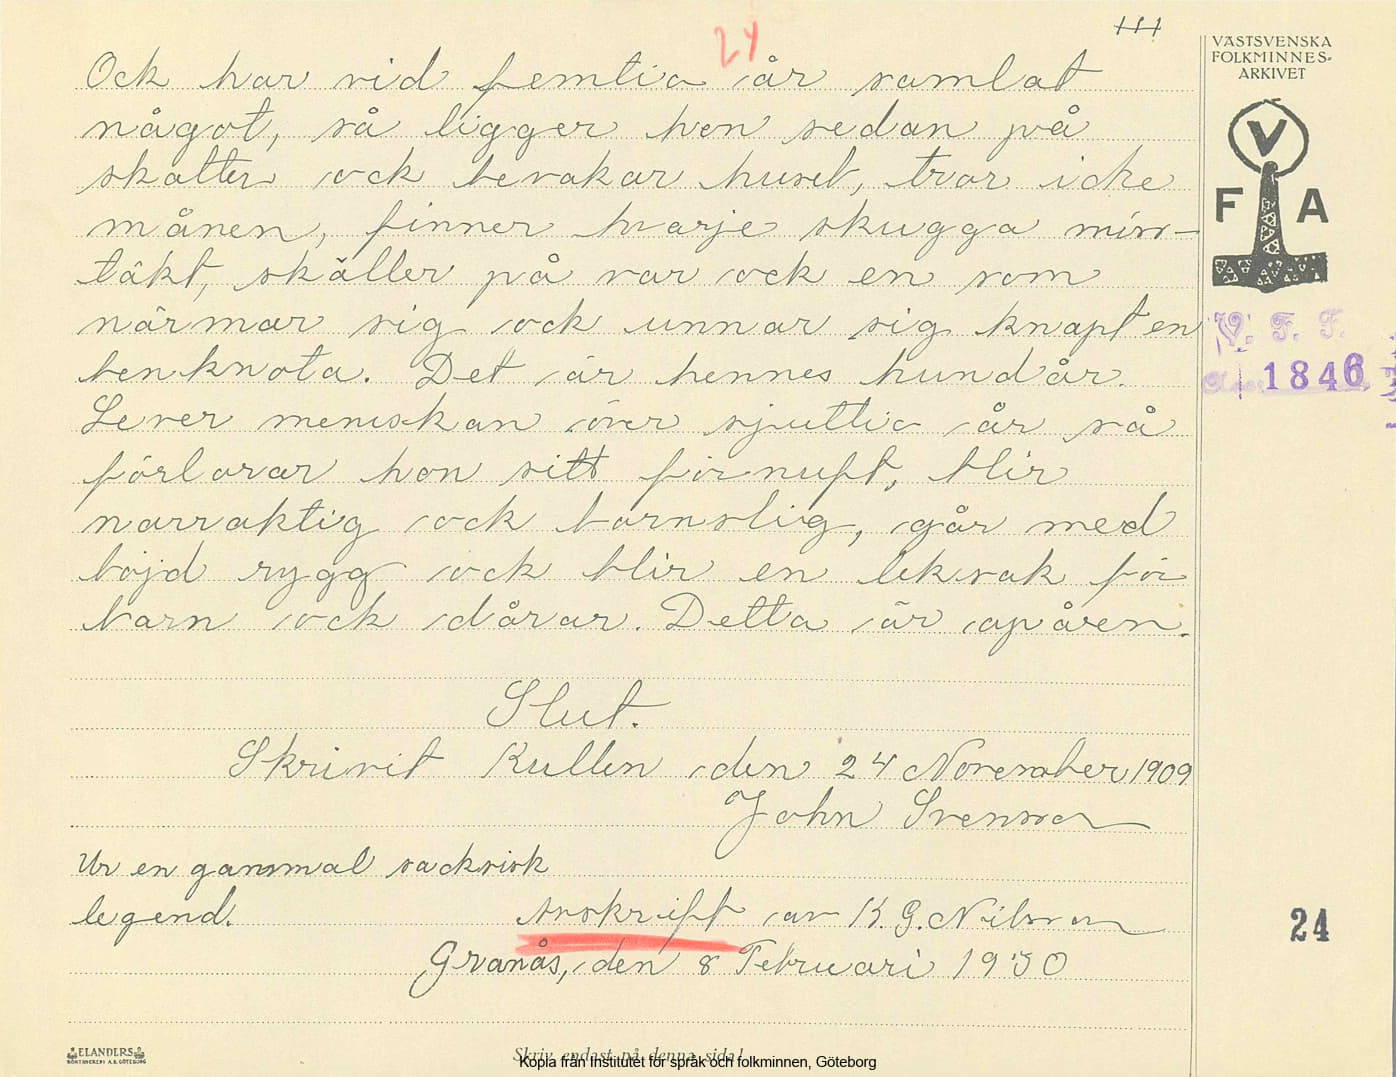 111
24
Ock har vid femtio år samlat
något, så ligger hon sedan på
skatten ock bevakar huset, tror icke
månen, finner hvarje skugga miss-
täkt, skäller på var ock en som
närmar sig ock unnar sig knapt en
benknota. Det är hennes hundår.
Lever meniskan över sjuttio år så
förlorar hon sitt förnuft, blir
narraktig ock barnslig, går med
böjd rygg ock blir en leksak för
barn ock dårar. Detta är apåren.
Slut.
Skrivit Kullen den 24 November 1909
John Svensson
Ur en gammal sacksisk
legend.
Avskrift av K. G. Nilsson
Granås, den 8 Februari 1930
VÄSTSVENSKA
FOLKMINNES-
ARKIVET
V
F A
V. F. F.
1846
24
ELANDERS
Skriv endast på denna sida!
Kopia från Institutet för språk och folkminnen, Göteborg